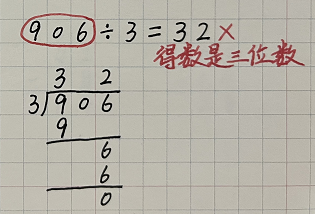 906÷3=32×
得数是三位数
3 2
3)906
9
6
6
0